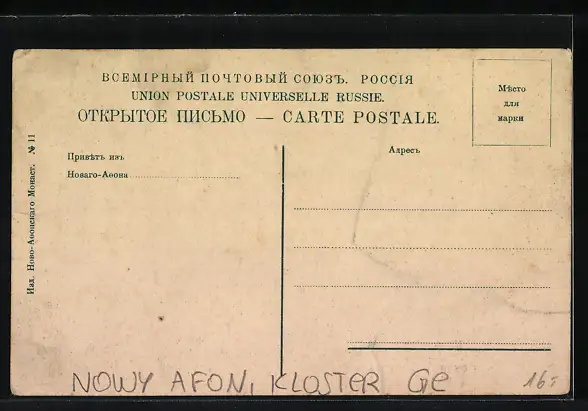 ВСЕМІРНЫЙ ПОЧТОВЫЙ СОЮЗЪ. РОССІЯ
UNION POSTALE UNIVERSELLE RUSSIE.
ОТКРЫТОЕ ПИСЬМО — CARTE POSTALE.
Мѣсто
для
марки
Привѣтъ изъ
Новаго-Аѳона
Адресъ
Изд. Ново-Аѳонскаго Монаст. № 11
NOWY AFON, KLOSTER GE